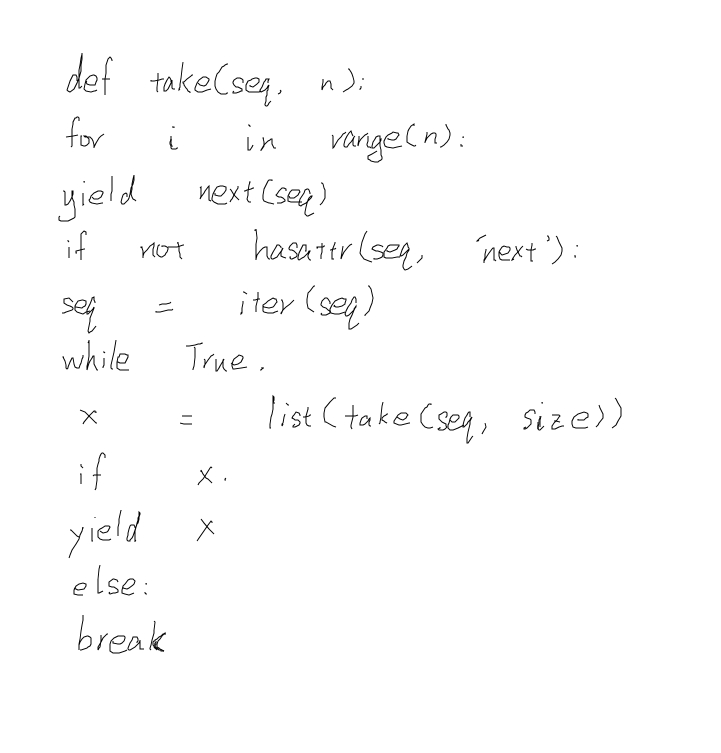 def take(seq, n):
for i in range(n):
yield next(seq)
if not hasattr(seq, 'next'):
seq = iter(seq)
while True.
x = list(take(seq, size))
if x.
yield x
else:
break